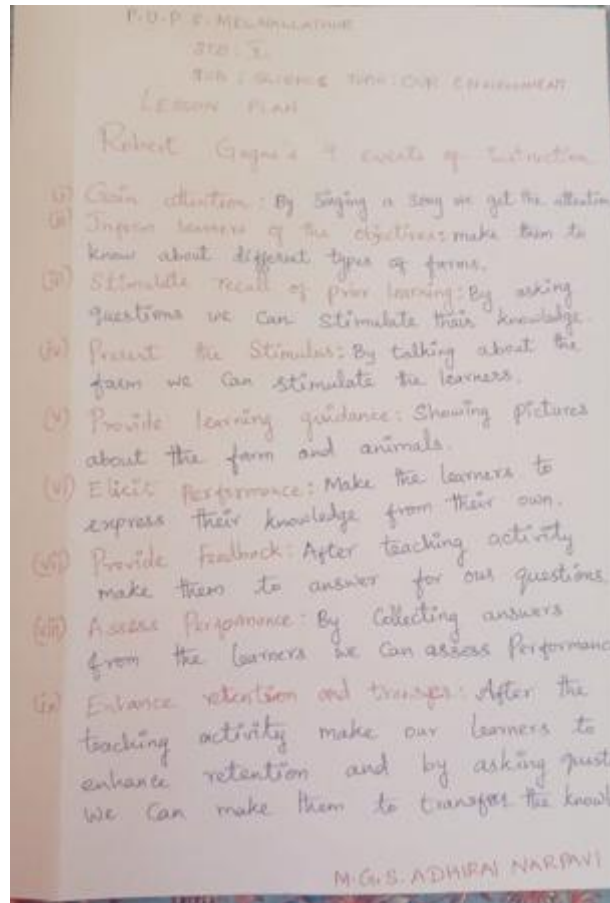 P.U.P.S. MELNALLATHUR
STD : I.
SUB : SCIENCE TOPIC : OUR ENVIRONMENT
LESSON PLAN
Robert Gagne's 9 events of Instruction
(i) Gain attention : By singing a song we get the attention
(ii) Inform learners of the objectives : make them to
know about different types of farms.
(iii) Stimulate recall of prior learning : By asking
questions we can stimulate their knowledge.
(iv) Present the Stimulus : By talking about the
farm we can stimulate the learners.
(v) Provide learning guidance : Showing pictures
about the farm and animals.
(vi) Elicit performance : Make the learners to
express their knowledge from their own.
(vii) Provide Feedback : After teaching activity
make them to answer for our questions
(viii) Assess Performance : By Collecting answers
from the learners we can assess Performanc
(ix) Enhance retention and transfer : After the
teaching activity make our learners to
enhance retention and by asking quest
we can make them to transfer the knowl
M.G.S. ADHIRAI NARPAVI